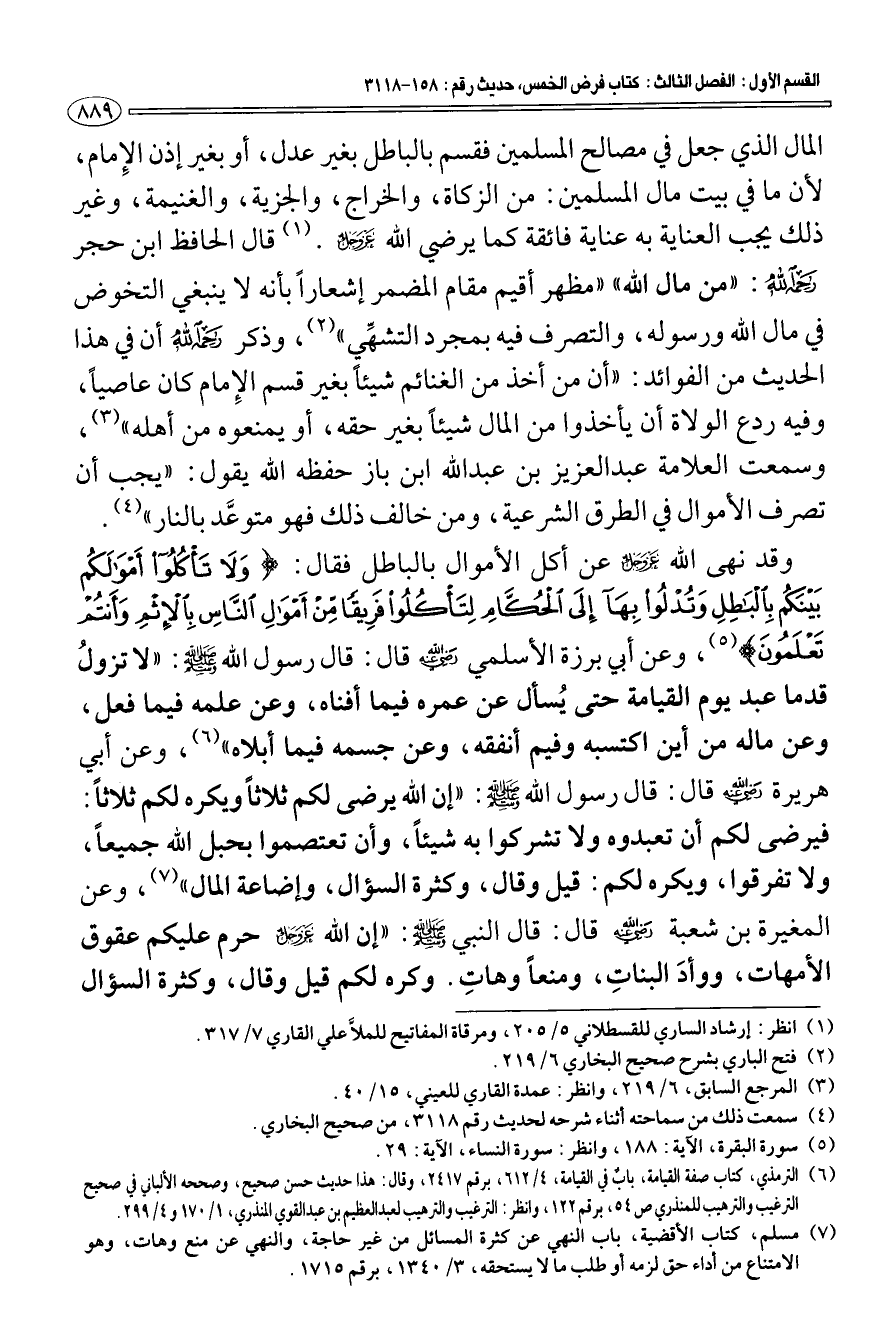 القسم الأول: الفصل الثالث: كتاب فرض الخمس، حديث رقم: ١٥٨-٣١١٨
٨٨٩
المال الذي جعل في مصالح المسلمين فقسم بالباطل بغير عدل، أو بغير إذن الإمام،
لأن ما في بيت مال المسلمين: من الزكاة، والخراج، والجزية، والغنيمة، وغير
ذلك يجب العناية به عناية فائقة كما يرضي الله عَزَّوَجَلَّ .(١) قال الحافظ ابن حجر
رَحِمَهُ اللَّهُ: «من مال الله» «مظهر أقيم مقام المضمر إشعاراً بأنه لا ينبغي التخوض
في مال الله ورسوله، والتصرف فيه بمجرد التشهِّي»(٢)، وذكر رَحِمَهُ اللَّهُ أن في هذا
الحديث من الفوائد: «أن من أخذ من الغنائم شيئاً بغير قسم الإمام كان عاصياً،
وفيه ردع الولاة أن يأخذوا من المال شيئاً بغير حقه، أو يمنعوه من أهله»(٣)،
وسمعت العلامة عبدالعزيز بن عبدالله ابن باز حفظه الله يقول: «يجب أن
تصرف الأموال في الطرق الشرعية، ومن خالف ذلك فهو متوعَّد بالنار»(٤).
وقد نهى الله عَزَّوَجَلَّ عن أكل الأموال بالباطل فقال: ﴿ وَلَا تَأْكُلُوٓا۟ أَمْوَٰلَكُم
بَيْنَكُم بِٱلْبَٰطِلِ وَتُدْلُوا۟ بِهَآ إِلَى ٱلْحُكَّامِ لِتَأْكُلُوا۟ فَرِيقًا مِّنْ أَمْوَٰلِ ٱلنَّاسِ بِٱلْإِثْمِ وَأَنتُمْ
تَعْلَمُونَ﴾(٥)، وعن أبي برزة الأسلمي رَضِيَ اللَّهُ عَنْهُ قال: قال رسول الله ﷺ: «لا تزولُ
قدما عبد يوم القيامة حتى يُسأل عن عمره فيما أفناه، وعن علمه فيما فعل،
وعن ماله من أين اكتسبه وفيم أنفقه، وعن جسمه فيما أبلاه»(٦)، وعن أبي
هريرة رَضِيَ اللَّهُ عَنْهُ قال: قال رسول الله ﷺ: «إن الله يرضى لكم ثلاثاً ويكره لكم ثلاثاً:
فيرضى لكم أن تعبدوه ولا تشركوا به شيئاً، وأن تعتصموا بحبل الله جميعاً،
ولا تفرقوا، ويكره لكم: قيل وقال، وكثرة السؤال، وإضاعة المال»(٧)، وعن
المغيرة بن شعبة رَضِيَ اللَّهُ عَنْهُ قال: قال النبي ﷺ: «إن الله عَزَّوَجَلَّ حرم عليكم عقوق
الأمهات، ووأدَ البناتِ، ومنعاً وهاتِ. وكره لكم قيل وقال، وكثرة السؤال
(١) انظر: إرشاد الساري للقسطلاني ٥/ ٢٠٥، ومرقاة المفاتيح للملاَّ علي القاري ٧/ ٣١٧.
(٢) فتح الباري بشرح صحيح البخاري ٦/ ٢١٩.
(٣) المرجع السابق، ٦/ ٢١٩، وانظر: عمدة القاري للعيني، ١٥/ ٤٠.
(٤) سمعت ذلك من سماحته أثناء شرحه لحديث رقم ٣١١٨، من صحيح البخاري.
(٥) سورة البقرة، الآية: ١٨٨، وانظر: سورة النساء، الآية: ٢٩.
(٦) الترمذي، كتاب صفة القيامة، بابٌ في القيامة، ٤/ ٦١٢، برقم ٢٤١٧، وقال: هذا حديث حسن صحيح، وصححه الألباني في صحيح
الترغيب والترهيب للمنذري ص ٥٤، برقم ١٢٢، وانظر: الترغيب والترهيب لعبدالعظيم بن عبدالقوي المنذري، ١/ ١٧٠ و ٤/ ٢٩٩.
(٧) مسلم، كتاب الأقضية، باب النهي عن كثرة المسائل من غير حاجة، والنهي عن منع وهات، وهو
الامتناع من أداء حق لزمه أو طلب ما لا يستحقه، ٣/ ١٣٤٠، برقم ١٧١٥.